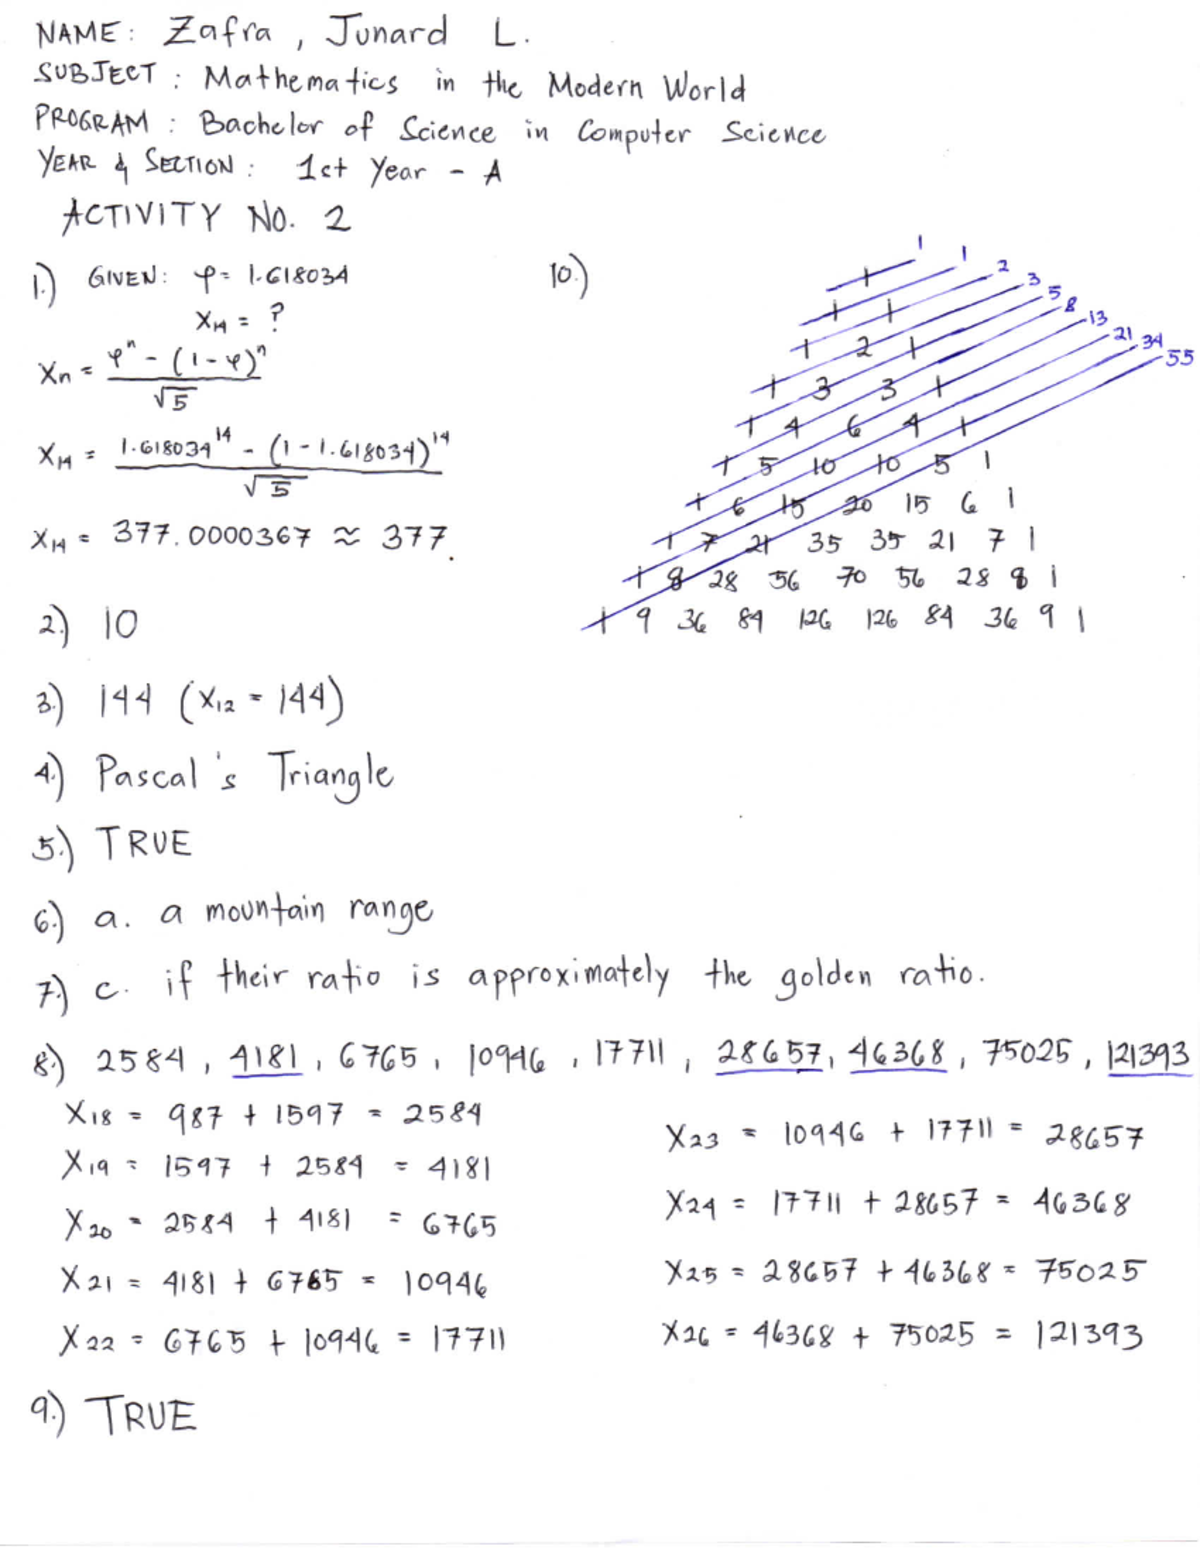 NAME: Zafra, Junard L.
SUBJECT: Mathematics in the Modern World
PROGRAM: Bachelor of Science in Computer Science
YEAR & SECTION: 1st Year - A
ACTIVITY NO. 2
1.) GIVEN: φ = 1.618034
X14 = ?
Xn = φ^n - (1-φ)^n / √5
X14 = 1.618034^14 - (1 - 1.618034)^14 / √5
X14 = 377.0000367 ≈ 377.
2.) 10
3.) 144 (X12 = 144)
4.) Pascal's Triangle
5.) TRUE
6.) a. a mountain range
7.) c. if their ratio is approximately the golden ratio.
8.) 2584, 4181, 6765, 10946, 17711, 28657, 46368, 75025, 121393
X18 = 987 + 1597 = 2584
X19 = 1597 + 2584 = 4181
X20 = 2584 + 4181 = 6765
X21 = 4181 + 6765 = 10946
X22 = 6765 + 10946 = 17711
X23 = 10946 + 17711 = 28657
X24 = 17711 + 28657 = 46368
X25 = 28657 + 46368 = 75025
X26 = 46368 + 75025 = 121393
9.) TRUE
10.)
1 1 2 3 5 8 13 21 34 55
1
1 1
1 2 1
1 3 3 1
1 4 6 4 1
1 5 10 10 5 1
1 6 15 20 15 6 1
1 7 21 35 35 21 7 1
1 8 28 56 70 56 28 8 1
1 9 36 84 126 126 84 36 9 1